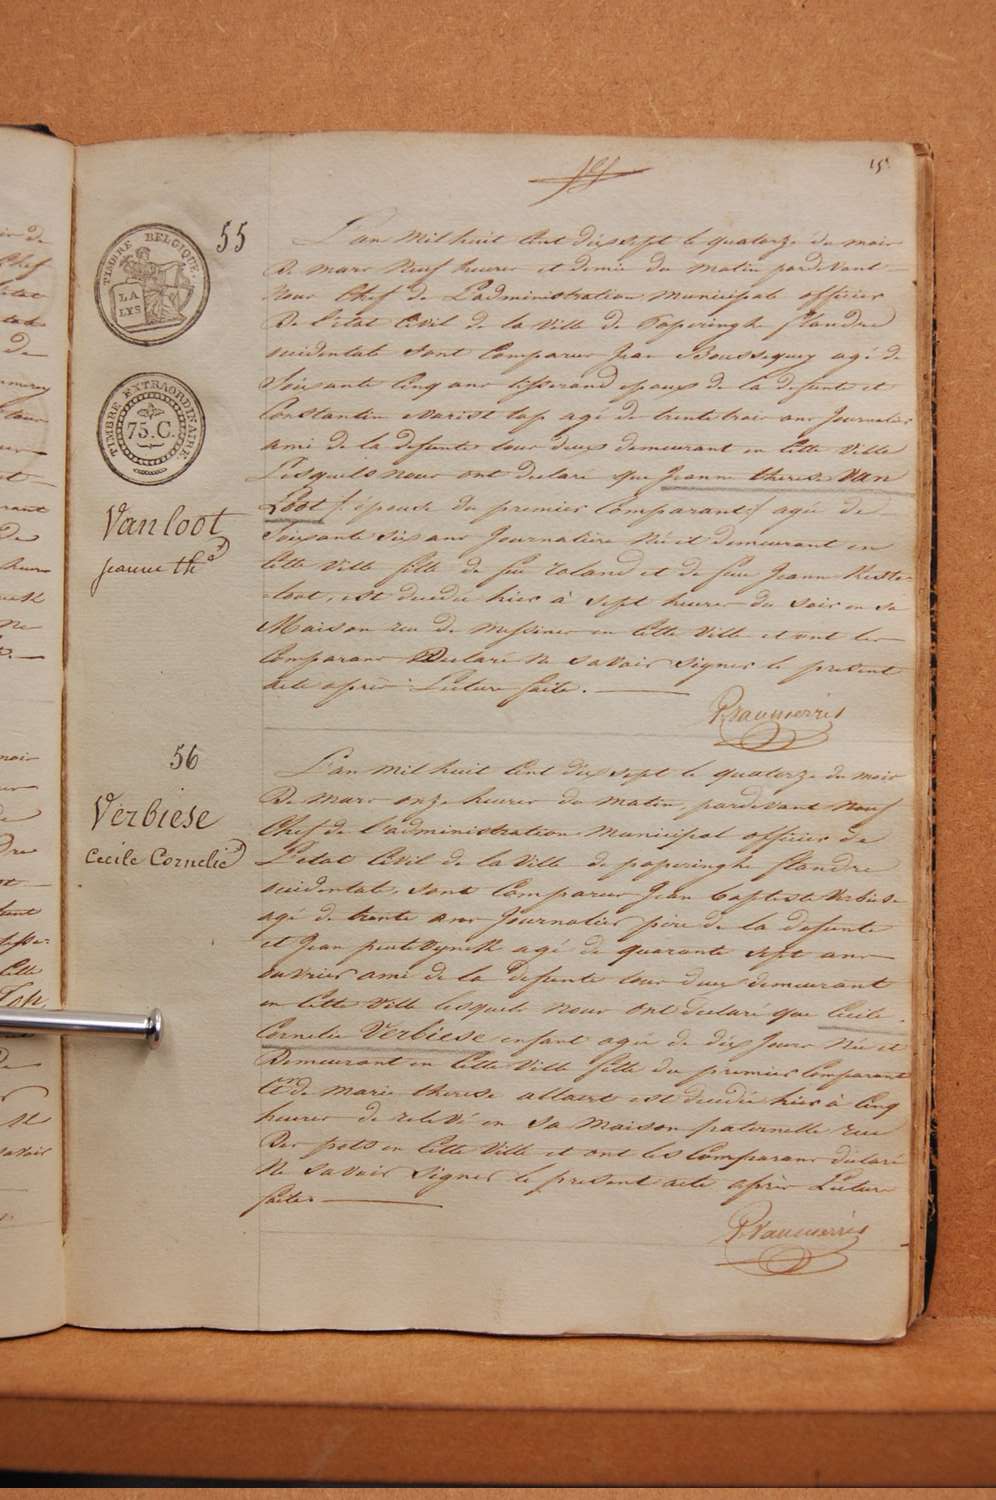 15
55
TIMBRE BELGIQUE.
LA
LYS
TIMBRE EXTRAORDINAIRE
75.C.
Vanloot
jeanne th.
L'an Mil huit Cent dix sept le quatorze du mois
De mars Neuf heures et demie du matin pardevant
Nous Chef de L'administration Municipale officier
De l'état Civil de la Ville de Poperinghe flandre
occidentale sont Comparus Jean Boussequey agé de
Soixante Cinq ans tisserand epoux de la defunte et
Constantin evarist tap agé de trente trois ans Journalier
ami de la defunte tous deux demeurant en Cette Ville
Lesquels nous ont declaré que Jeanne therese Van
Loot /: épouse du premier Comparant :/ agée de
Soixante Six ans Journalière Né et demeurant en
Cette Ville fille de feu roland et de feu Jeanne Keste-
-loot, est decedée hier à sept heures du soir en sa
Maison rue de messines en Cette Ville et ont les
Comparans Declaré Ne savoir signer le present
acte après Lecture faite.
P. Vanmerris
56
Verbiese
Cecile Cornelie
L'an mil huit Cent dix sept le quatorze du mois
De mars onze heures du matin, pardevant Nous
Chef de l'administration Municipal officier de
L'etat Civil de la Ville de poperinghe flandre
occidentale, sont Comparus Jean baptiste Verbiese
agé de trente ans Journalier père de la defunte
et Jean
agé de quarante sept ans
ouvrier ami de la defunte tous deux demeurant
en Cette Ville lesquels nous ont declaré que Cecile
Cornelie Verbiese enfant agée de dix Jours Née et
Demeurant en Cette Ville fille du premier Comparant
et de marie therese allaert est decedée hier à Cinq
heures de relevé en sa maison paternelle rue
Des pots en Cette Ville et ont les Comparans declaré
Ne savoir Signer le present acte après Lecture
faite.
P. Vanmerris